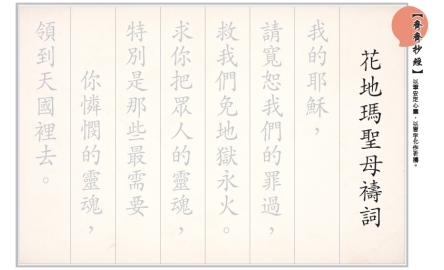 【齊齊抄經】
以筆安定心靈，以習字化作祈禱。
花地瑪聖母禱詞
我的耶穌，
請寬恕我們的罪過，
救我們免地獄永火。
求你把眾人的靈魂，
特別是那些最需要
你憐憫的靈魂，
領到天國裡去。